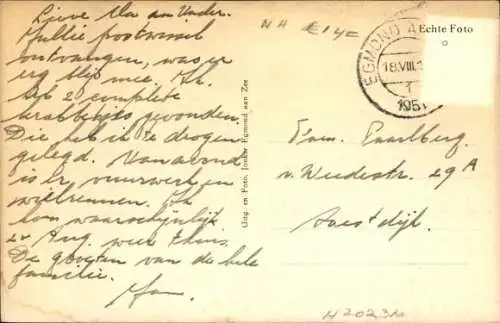 Lieve Ma en Vader.
Jullie postwissel
ontvangen, was er
erg blij mee. Ik
heb 2 complete
krabbetjes gevonden.
Die heb ik te drogen
gelegd. Vanavond
is er vuurwerk en
wielrennen. Ik
kom waarschijnlijk
2e Aug. weer thuis.
De groeten van de hele
familie.
Uitg. en Foto. Jonker Egmond aan Zee
N H €1,4=
EGMOND A
18.VIII.1
1
1951
Echte Foto
Fam. Paarlberg.
v. Weedestr. 29A
Soestdijk.
H2023m